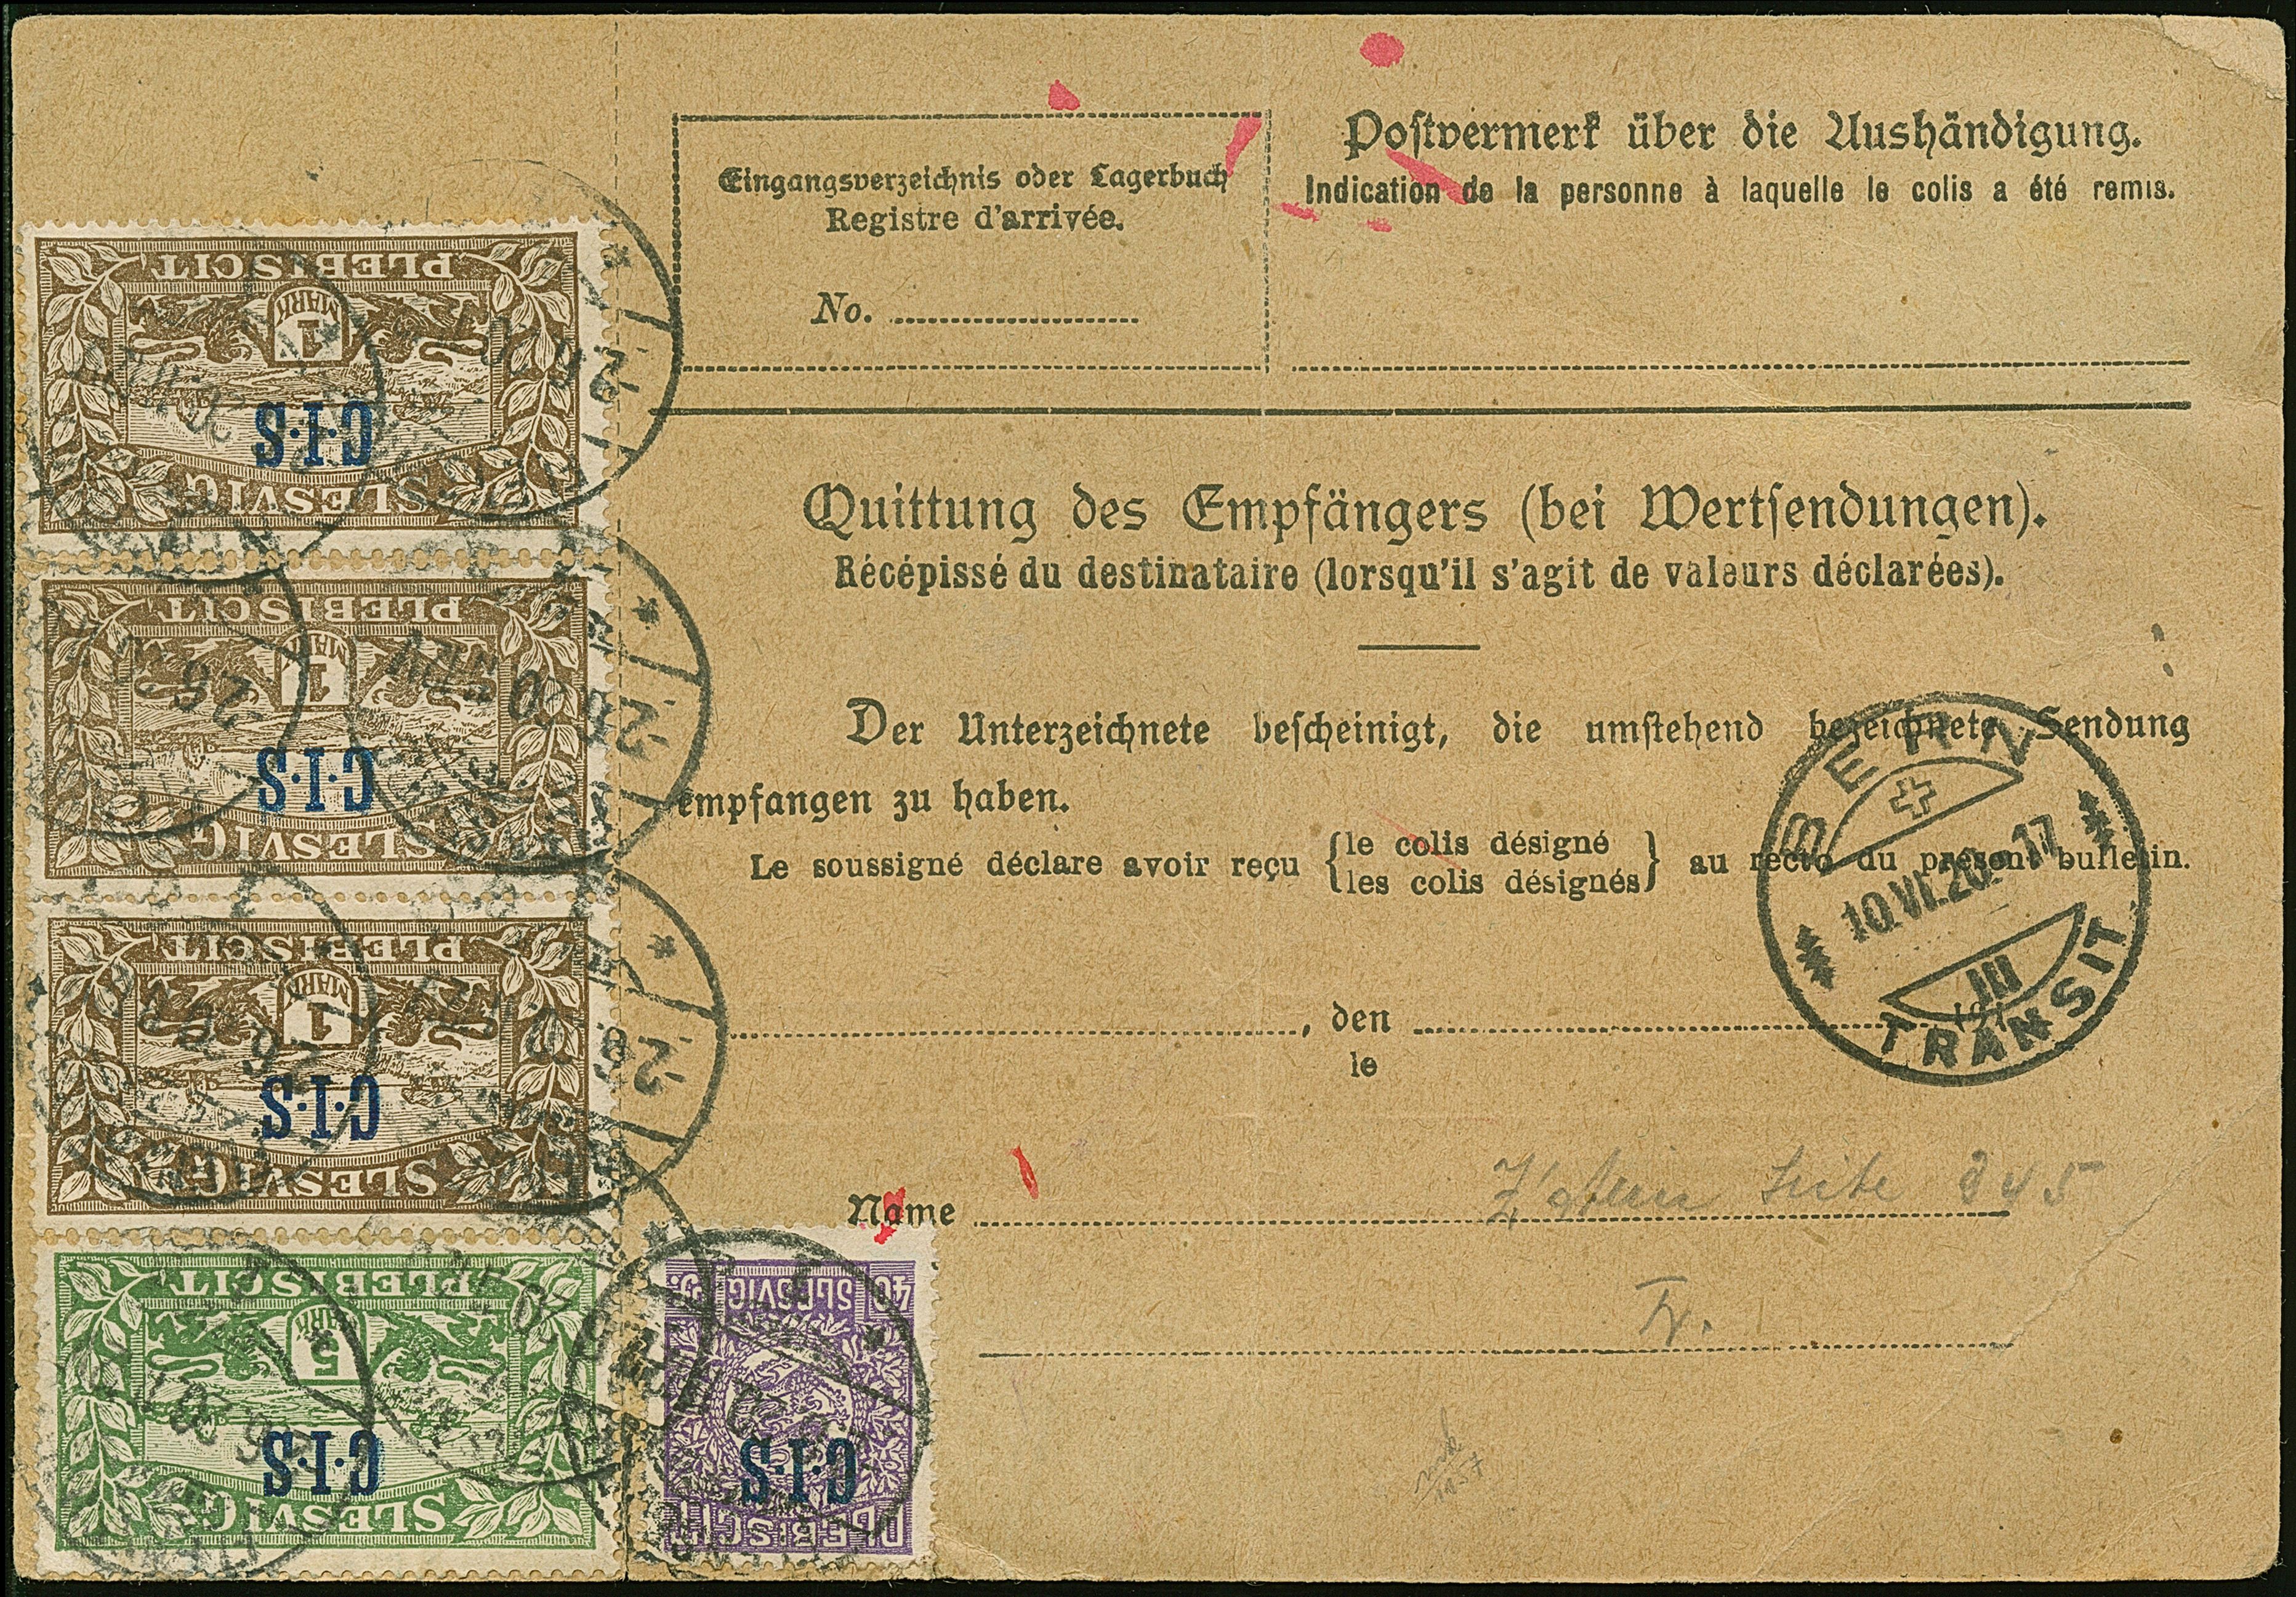 Eingangsverzeichnis oder Lagerbuch
Registre d'arrivée.
No.
Postvermerk über die Aushändigung.
Indication de la personne à laquelle le colis a été remis.
Quittung des Empfängers (bei Wertsendungen).
Récépissé du destinataire (lorsqu'il s'agit de valeurs déclarées).
Der Unterzeichnete bescheinigt, die umstehend bezeichnete Sendung
empfangen zu haben.
Le soussigné déclare avoir reçu {le colis désigné / les colis désignés} au recto du présent bulletin.
, den
le
Name
845
BERN
10.VI.20.-17
III
TRANSIT
PLEBISCIT
1
MARK
C·I·S
SLESVIG
PLEBISCIT
1
MARK
C·I·S
SLESVIG
PLEBISCIT
1
MARK
C·I·S
SLESVIG
PLEBISCIT
5
MARK
C·I·S
SLESVIG
40
SLESVIG
C·I·S
PLEBISCIT